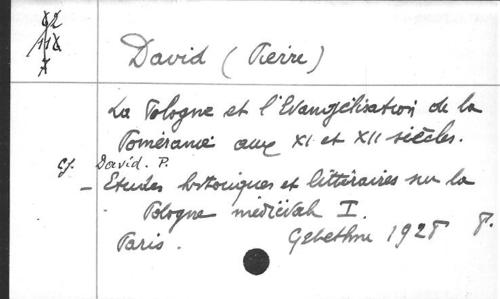 David (Pierre)
La Pologne et l'Evangélisation de la
Poméranie aux XI et XII siècles.
Cf. David. P.
– Etudes historiques et littéraires sur la
Pologne médiévale I.
Paris. Gebethner 1928 8.